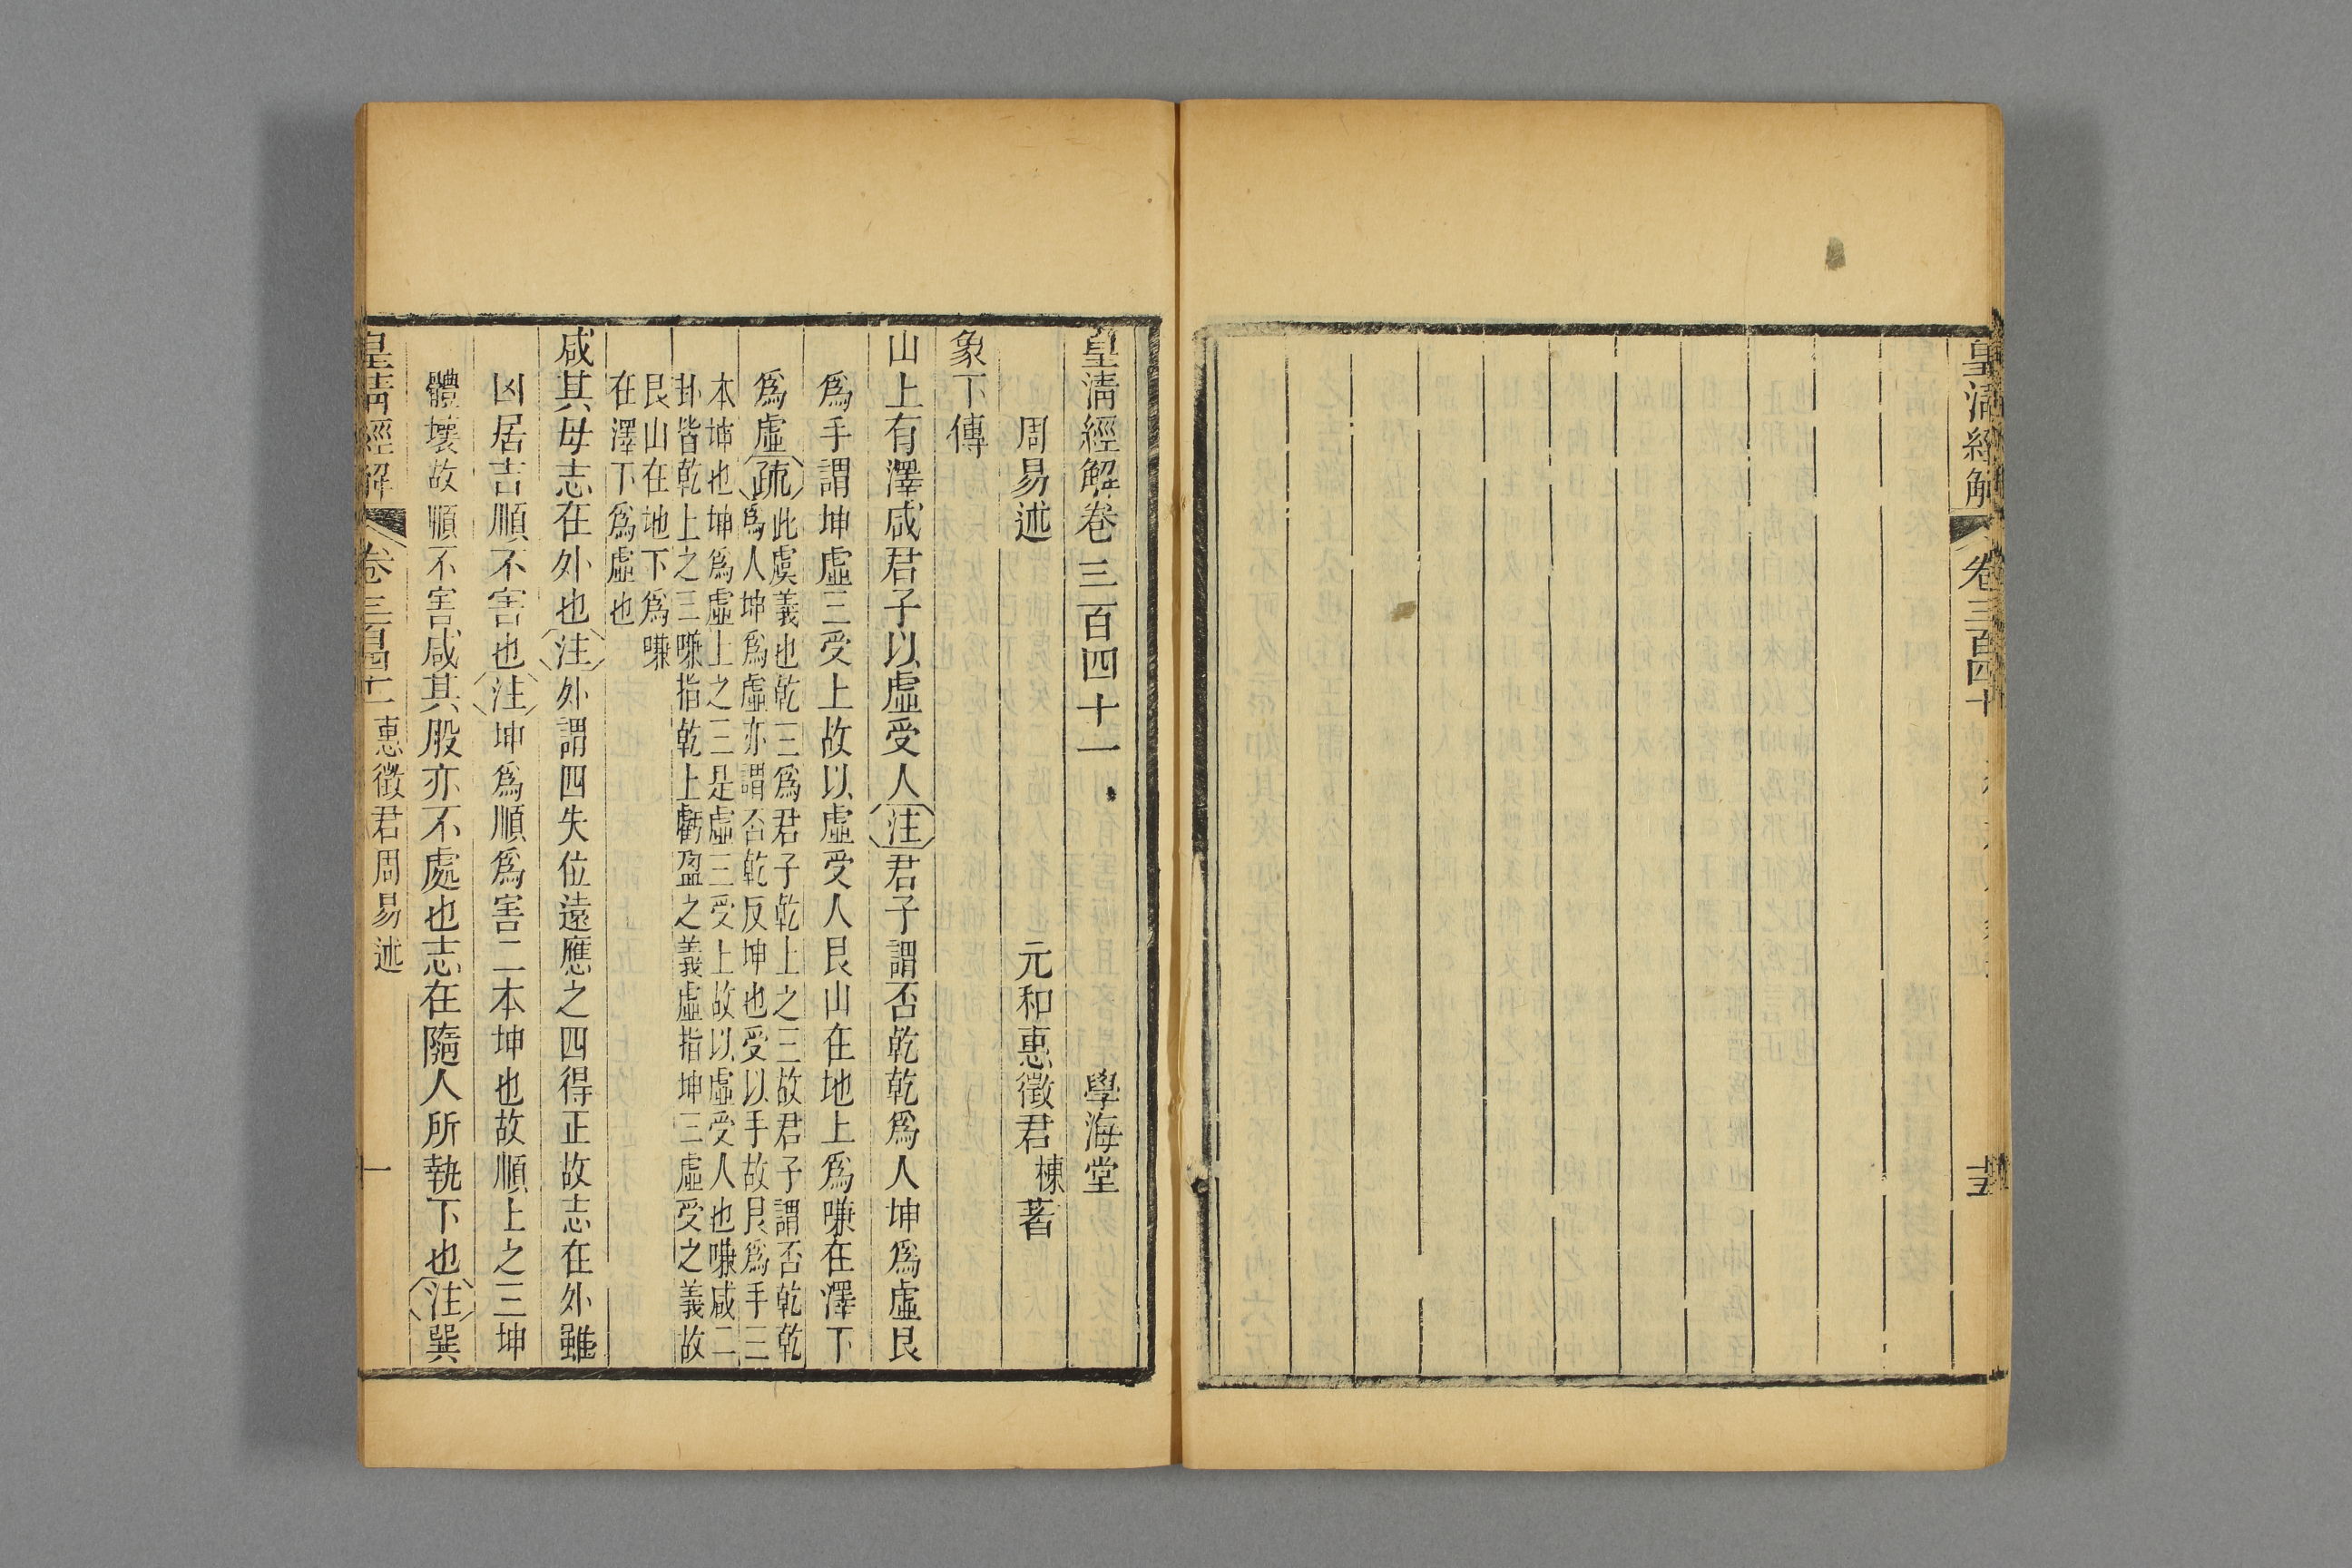 皇清經解
卷三百四十
皇清經解卷三百四十一
學海堂
周易述
元和惠徵君棟著
象下傳
山上有澤咸君子以虛受人注君子謂否乾乾爲人坤爲虛艮
爲手謂坤虛三受上故以虛受人艮山在地上爲嗛在澤下
爲虛疏此虞義也乾三爲君子乾上之三故君子謂否乾乾
爲人坤爲虛亦謂否乾反坤也受以手故艮爲手三
本坤也坤爲虛上之三是虛三受上故以虛受人也嗛咸二
卦皆乾上之三嗛指乾上虧盈之義虛指坤三虛受之義故
艮山在地下爲嗛
在澤下爲虛也
咸其母志在外也注外謂四失位遠應之四得正故志在外雖
凶居吉順不害也注坤爲順爲害二本坤也故順上之三坤
體壞故順不害咸其股亦不處也志在隨人所執下也注巽
皇清經解
卷三百四十一
惠徵君周易述
一